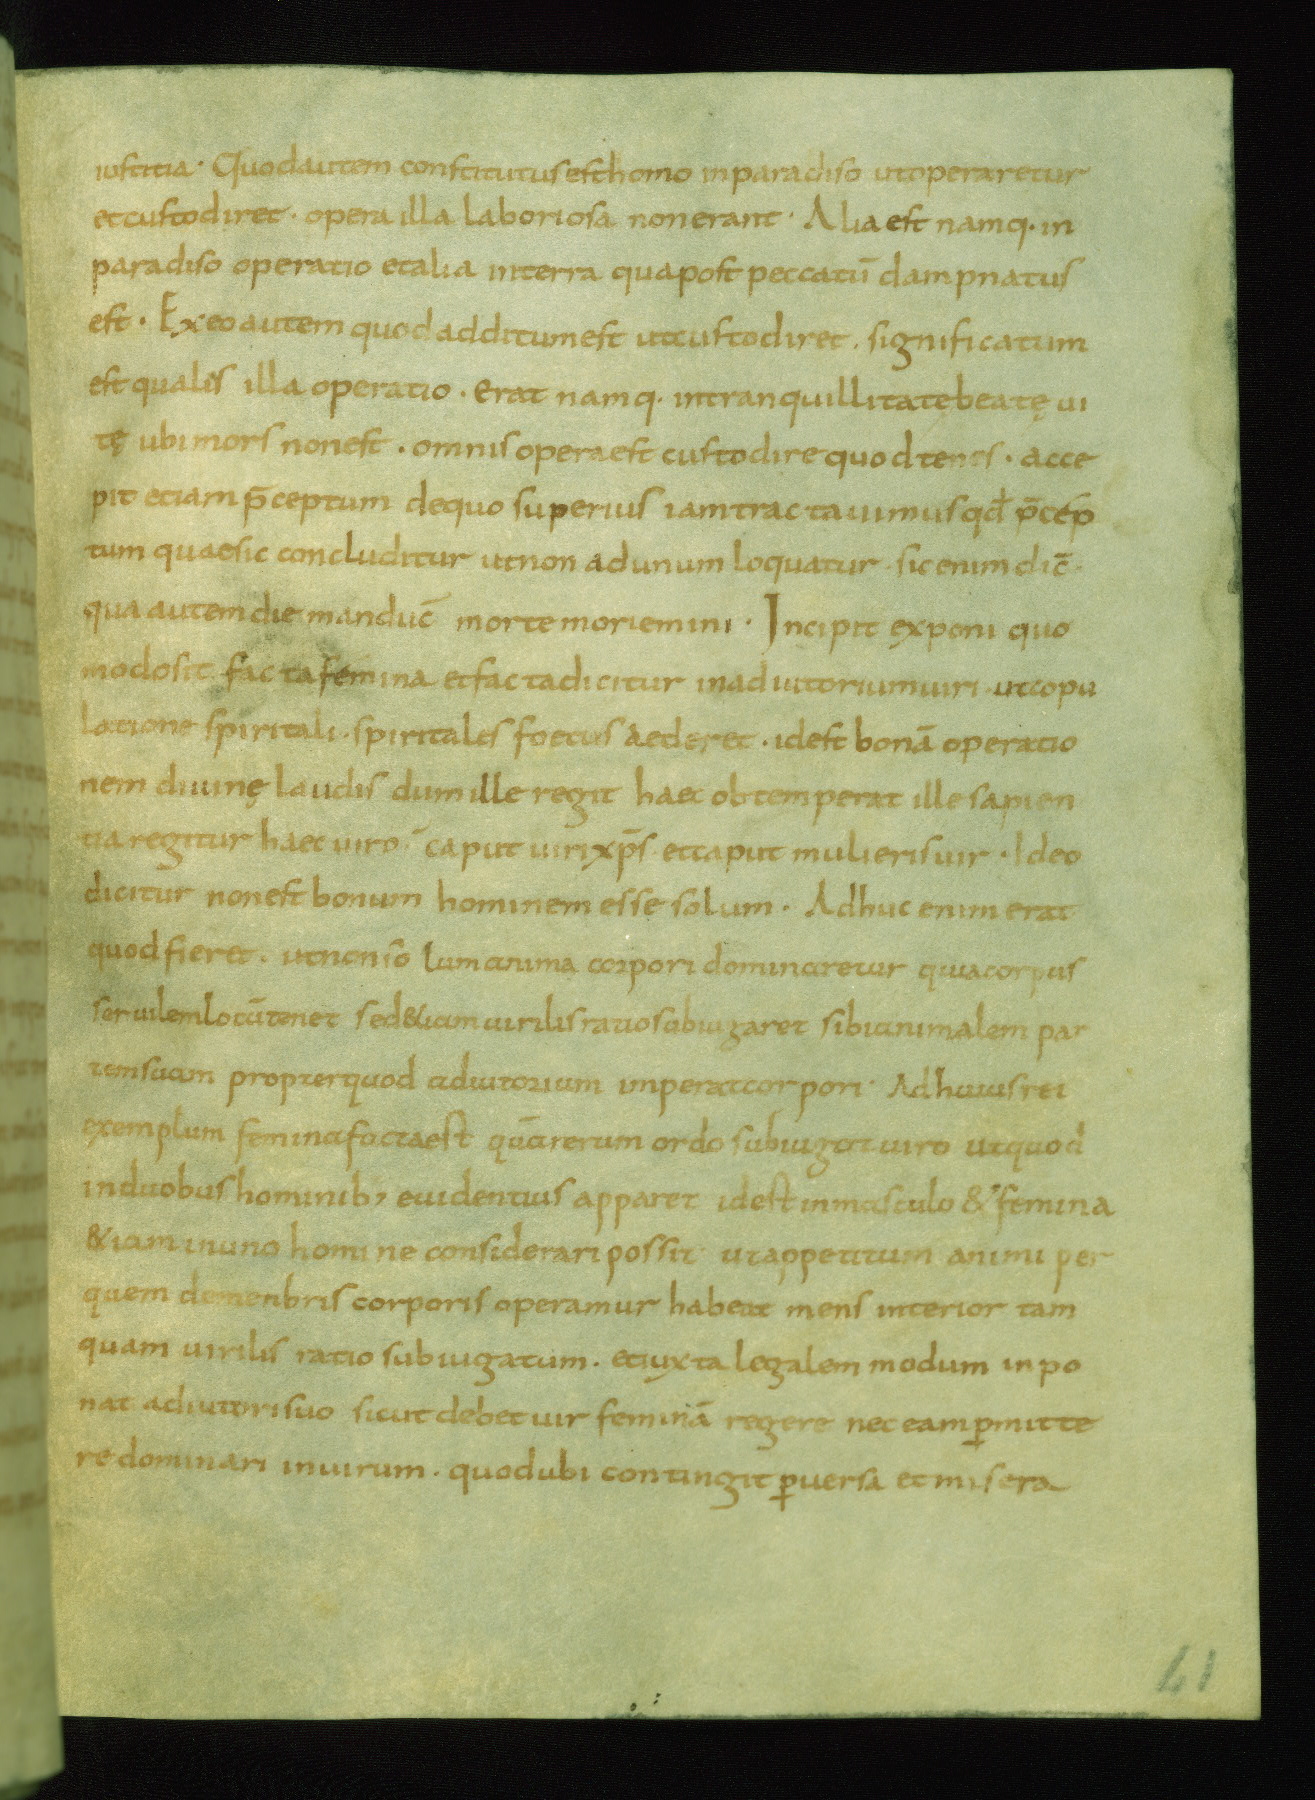 iustitia· Quodautem constitutusesthomo inparadiso utoperaretur
etcustodiret· opera illa laboriosa nonerant· Alia est namq· in
paradiso operatio etalia interra quapost peccatū dampnatus
est· Exeoautem quodadditumest utcustodiret· significatum
est qualis illa operatio· erat namq· intranquillitatębeatę ui
tę ubimors nonest· omnisoperaest custodirequodtenes· acce
pit etiam p̄ceptum dequo superius iamtractauimus qđ p̄cep
tum quaesic concluditur utnon adunum loquatur· sicenim dic̄·
qua autem die manduc̄ morte moriemini· Incipit exponi quo
modosit factafemina etfactadicitur inadiutoriumuiri utcopu
latione spiritali· spiritales foetus aederet· idest bonā operatio
nem diuinę laudis dum ille regit haec obtemperat ille sapien
tia regitur haec uiro· caput uirixp̄s etcaput mulierisuir· Ideo
dicitur nonest bonum hominem esse solum· Adhuc enim erat
quodfieret· utnonso lumanima corpori dominaretur quiacorpus
seruilemlocūtenet sed&iamuirilisratiosubiugaret sibianimalem par
temsuam propterquod adiutorium imperatcorpori· Adhuiusrei
exemplum feminafactaest quārerum ordo subiugat uiro utquod
induobushominib; euidentius apparet idestinmasculo & femina
&iam inuno homine considerari possit· utappetitum animi per
quem demenbris corporis operamur habeat mens interior tam
quam uirilis ratio subiugatum· etiuxta legalem modum inpo
nat adiutorisuo sicut debet uir feminā regere nec eam p̱mitte
re dominari inuirum· quodubi contingit p̱uersa et misera
41